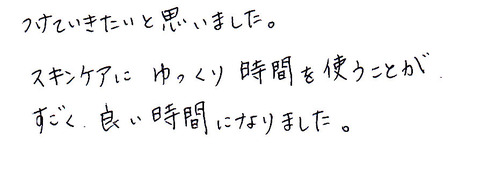 つけていきたいと思いました。
スキンケアに ゆっくり 時間を使うことが
すごく 良い時間になりました。